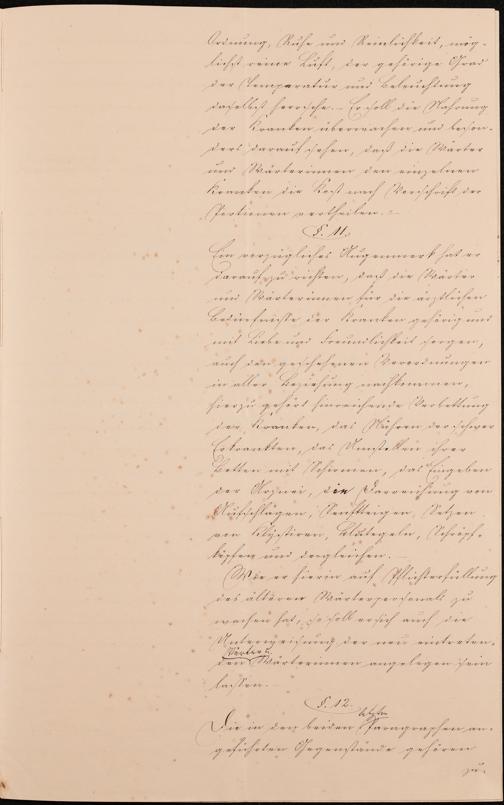 Ordnung, Ruhe und Reinlichkeit, mög-
lichst reine Luft, der gehörige Grad
der Temperatur und Beleuchtung
daselbst herrsche. – Er soll die Nahrung
der Kranken überwachen und beson-
ders darauf sehen, daß die Wärter
und Wärterinnen den einzelnen
Kranken die Kost nach Vorschrift der
Portionen vertheilen. –
§. 11.
Ein vorzügliches Augenmerk hat er
darauf zu richten, daß die Wärter
und Wärterinnen für die ärztlichen
Bedürfnisse der Kranken gehörig und
mit Liebe und Freundlichkeit sorgen,
auch den geschehenen Verordnungen
in aller Beziehung nachkommen,
hierzu gehört hinreichende Verbettung
der Kranken, das Führen der schwer
Erkrankten, das Umstellen ihrer
Betten mit Schirmen, das Eingeben
der Arznei, die Darreichung von
Aufschlägen, Senfteigen, Setzen
von Klystiren, Blutegeln, Schröpf-
köpfen und dergleichen. –
Wie er hierin auf Pflichterfüllung
des älteren Wärterpersonals zu
wachen hat, so soll er sich auch die
Unterweisung der neu eintreten-
Wärter u.
den Wärterinnen angelegen sein
lassen. –
§. 12.
letzten
Die in den beiden Paragraphen an-
geführten Gegenstände gehören
zu-